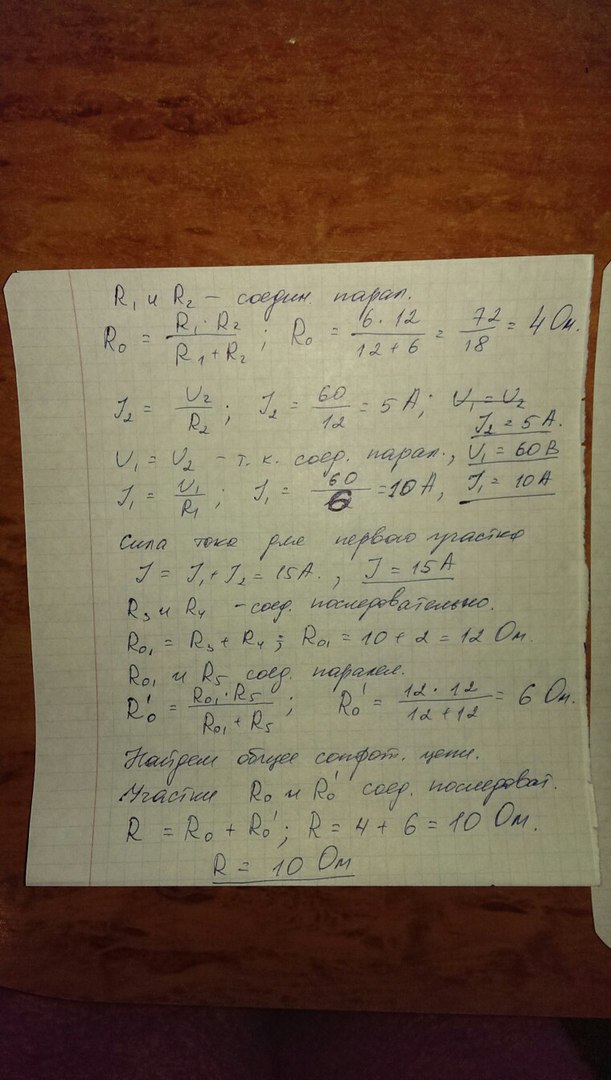 R₁ и R₂ – соедин. парал.
R₀ = R₁·R₂ / R₁+R₂ ; R₀ = 6·12 / 12+6 = 72/18 = 4 Ом.
I₂ = U₂/R₂ ; I₂ = 60/12 = 5 А; U₁ = U₂
I₂ = 5 А.
U₁ = U₂ – т. к. соед. парал., U₁ = 60 В
I₁ = U₁/R₁ ; I₁ = 60/6 = 10 А, I₁ = 10 А
Сила тока для первого участка
I = I₁ + I₂ = 15 А. , I = 15 А
R₃ и R₄ – соед. последовательно.
R₀₁ = R₃ + R₄ ; R₀₁ = 10 + 2 = 12 Ом.
R₀₁ и R₅ соед. паралел.
R₀' = R₀₁·R₅ / R₀₁+R₅ ; R₀' = 12·12 / 12+12 = 6 Ом.
Найдем общее сопрот. цепи.
Участки R₀ и R₀' соед. последоват.
R = R₀ + R₀' ; R = 4 + 6 = 10 Ом.
R = 10 Ом